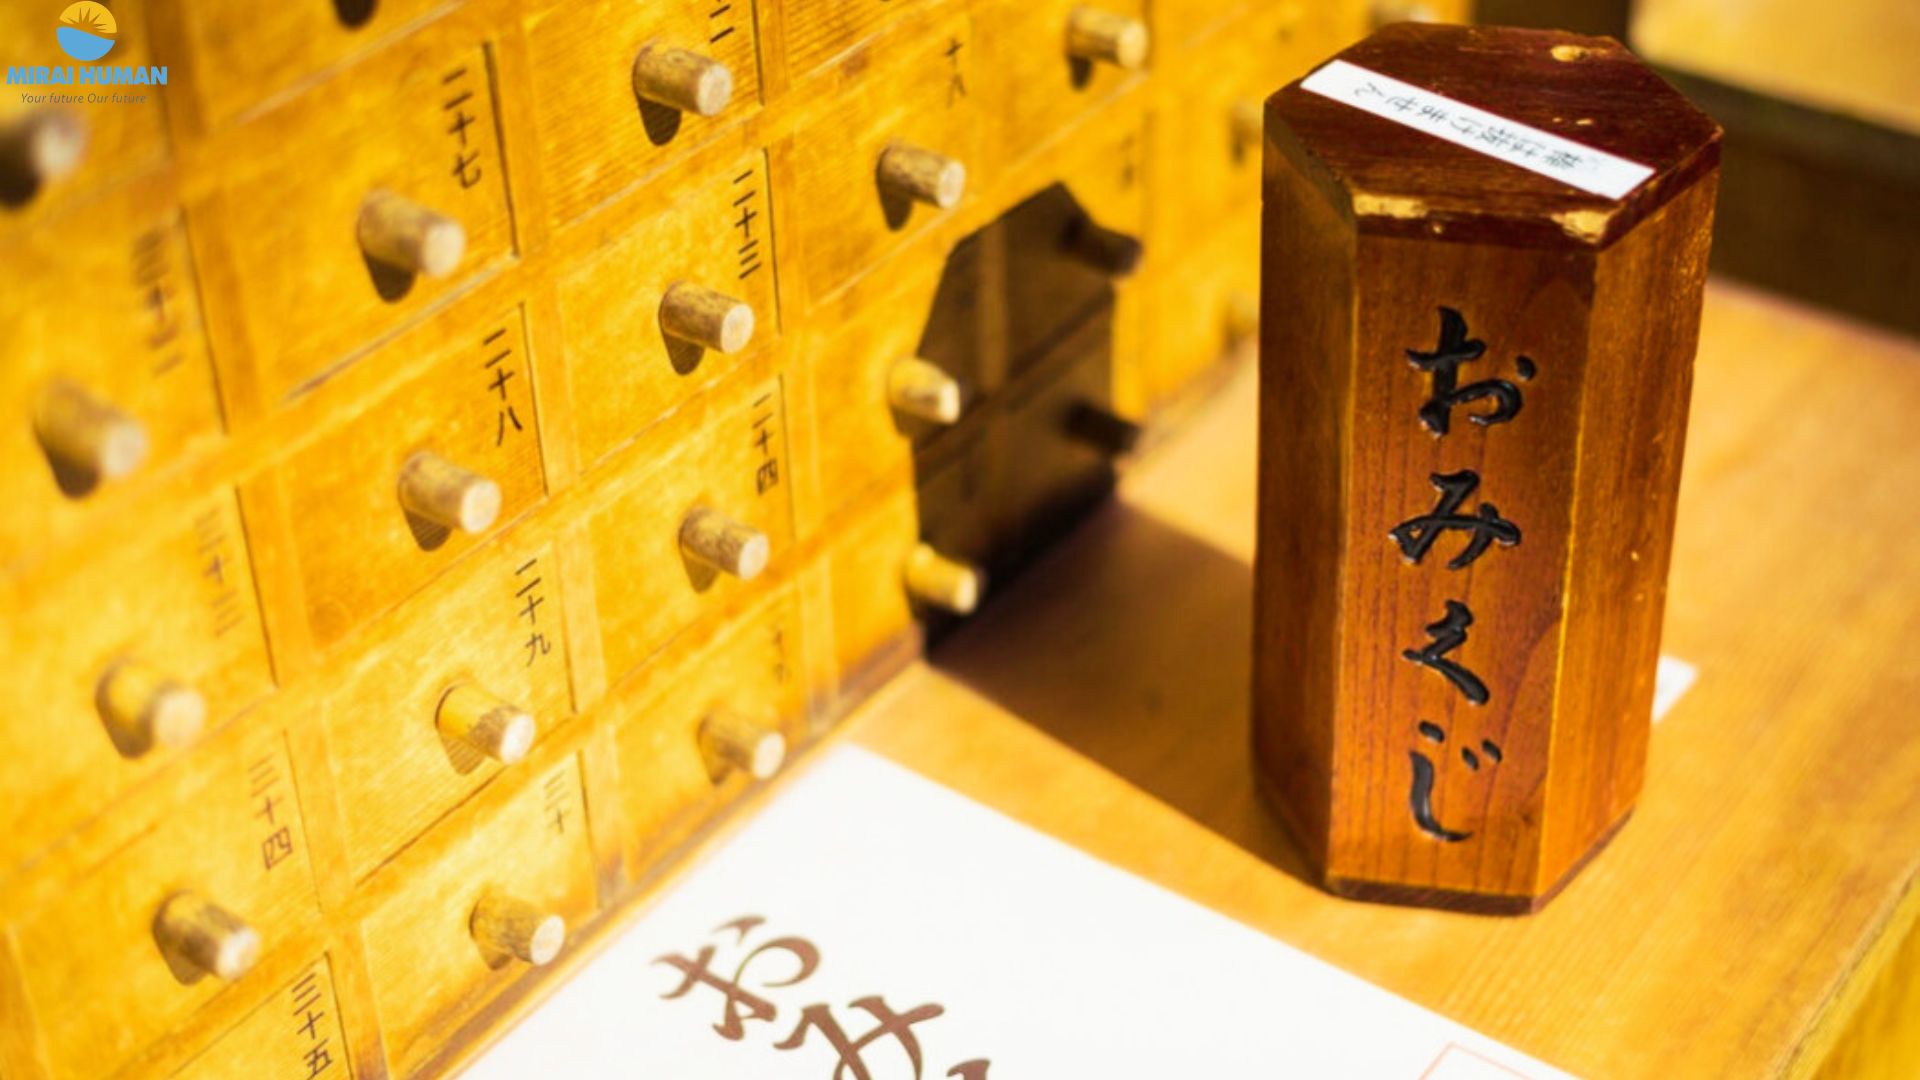 MIRAI HUMAN
Your future Our future
二十七
二十八
二十九
三十
二十三
二十四
十八
三十二
三十三
三十四
三十五
おみくじ
おみ